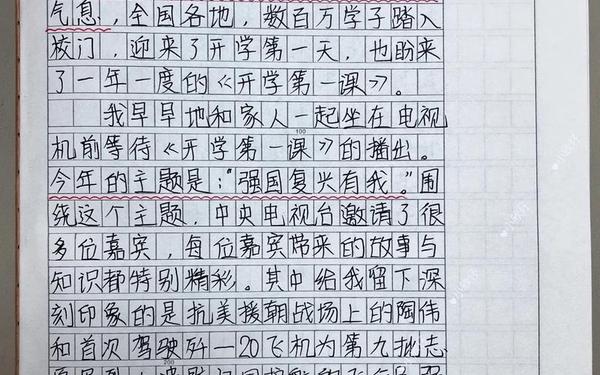 气息，全国各地，数百万学子踏入
校门，迎来了开学第一天，也盼来
了一年一度的《开学第一课》。
我早早地和家人一起坐在电视
100
机前等待《开学第一课》的播出。
今年的主题是：“强国复兴有我。”围
绕这个主题，中央电视台邀请了很
多位嘉宾，每位嘉宾带来的故事与
知识都特别精彩。其中给我留下深
刻印象的是抗美援朝战场上的陶伟
和首次驾驶歼—20飞机为第九批志
200